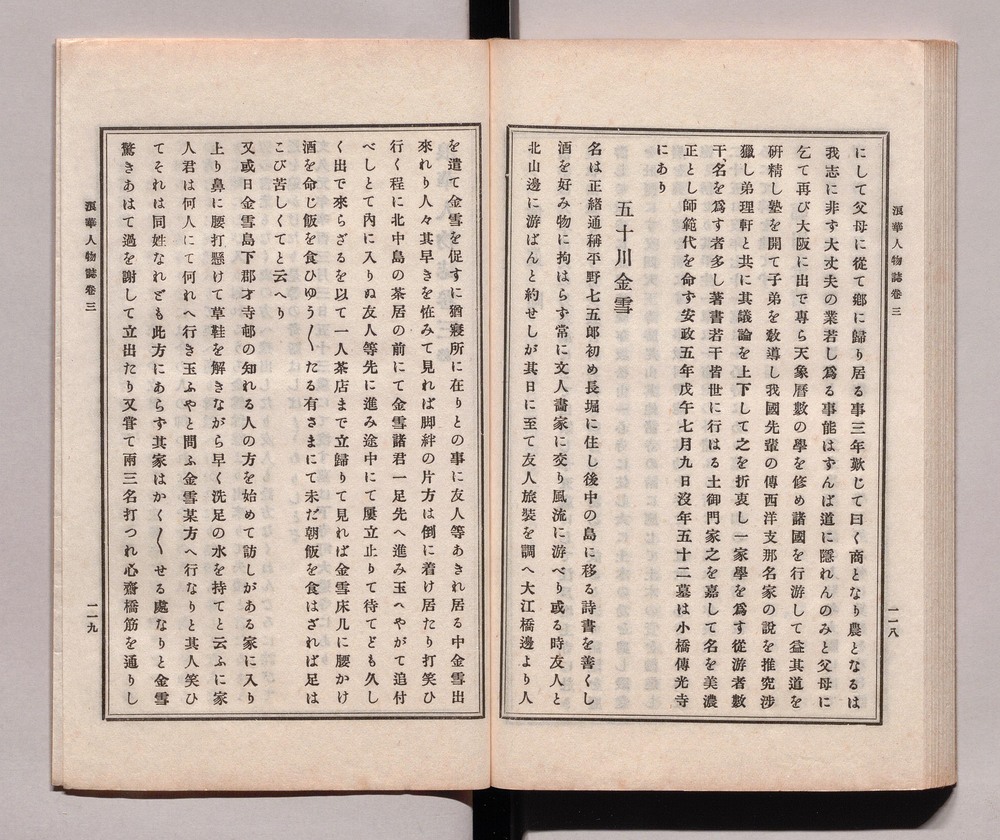 浪華人物誌卷三
一一八
にして父母に從て鄕に歸り居る事三年歎じて曰く商となり農となるは
我志に非ず大丈夫の業若し爲る事能はずんば道に隱れんのみと父母に
乞て再び大阪に出で專ら天象曆數の學を修め諸國を行游して益其道を
硏精し塾を開て子弟を敎導し我國先輩の傳西洋支那名家の說を推究涉
獵し弟理軒と共に其議論を上下して之を折衷し一家學を爲す從游者數
千、名を爲す者多し著書若干皆世に行はる土御門家之を嘉して名を美濃
正とし師範代を命ず安政五年戊午七月九日沒年五十二墓は小橋傳光寺
にあり
五十川金雪
名は正緖通稱平野七五郎初め長堀に住し後中の島に移る詩書を善くし
酒を好み物に拘はらず常に文人畵家に交り風流に游べり或る時友人と
北山邊に游ばんと約せしが其日に至て友人旅裝を調へ大江橋邊より人
を遣て金雪を促すに猶寢所に在りとの事に友人等あきれ居る中金雪出
來れり人々其早きを恠みて見れば脚絆の片方は倒に着け居たり打笑ひ
行く程に北中島の茶居の前にて金雪諸君一足先へ進み玉へやがて追付
べしとて內に入りぬ友人等先に進み途中にて屢立止りて待てども久し
く出で來らざるを以て一人茶店まで立歸りて見れば金雪床几に腰かけ
酒を命じ飯を食ひゆう〱たる有さまにて未だ朝飯を食はざれば足は
こび苦しくてと云へり
又或日金雪島下郡才寺邨の知れる人の方を始めて訪しがある家に入り
上り鼻に腰打懸けて草鞋を解きながら早く洗足の水を持てと云ふに家
人君は何人にて何れへ行き玉ふやと問ふ金雪某方へ行なりと其人笑ひ
てそれは同姓なれども此方にあらず其家はかく〱せる處なりと金雪
驚きあはて過を謝して立出たり又嘗て兩三名打つれ心齋橋筋を通りし
浪華人物誌卷三
一一九